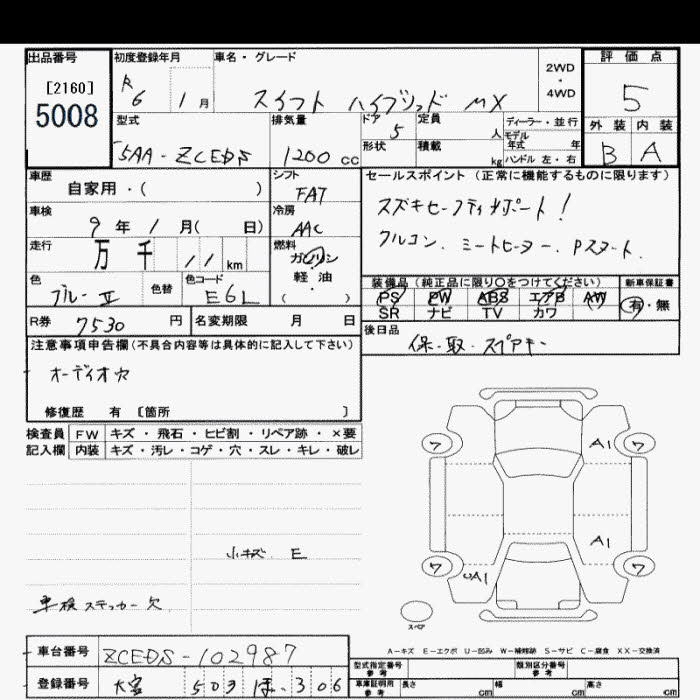 出品番号 初度登録年月 車名・グレード 2WD・4WD 評価点
[2160]
5008
R6 1月 スイフト ハイブリッド MX 5
型式 排気量 ドア 5 定員 人 ディーラー・並行 外装 内装
5AA-ZCEDS 1200cc 形状 積載 kg モデル年式 年 ハンドル 左・右 B A
車歴 自家用・( ) シフト FAT セールスポイント (正常に機能するものに限ります)
車検 9年1月( 日) 冷房 AAC スズキセーフティサポート!
走行 万 千 11 km 燃料 ガソリン 軽・油 ( ) クルコン. ミートヒーター. Pスタート.
色 ブルーII 色替 色コード E6L 装備品(純正品に限り○をつけてください) 新車保証書
PS PW ABS エアB AW 有・無
SR ナビ TV カワ
R券 7530円 名変期限 月 日 後日品
保・取・スペアキー
注意事項申告欄(不具合内容等は具体的に記入して下さい)
オーディオ穴
修復歴 有 [箇所 ]
検査員 FW キズ・飛石・ヒビ割・リペア跡・×要
記入欄 内装 キズ・汚レ・コゲ・穴・スレ・キレ・破レ
ワ A1 ワ
小キズ E
A1
ワ UA1 ワ
車検ステッカー欠
スペア
A-キズ E-エクボ U-凹み W-補修跡 S-サビ C-腐食 XX-交換済
車台番号 ZCEDS-102987
型式指定番号 参考 類別区分番号 参考
登録番号 大宮 503 ほ-306
車庫証明用 参考 長さ cm 幅 cm 高さ cm